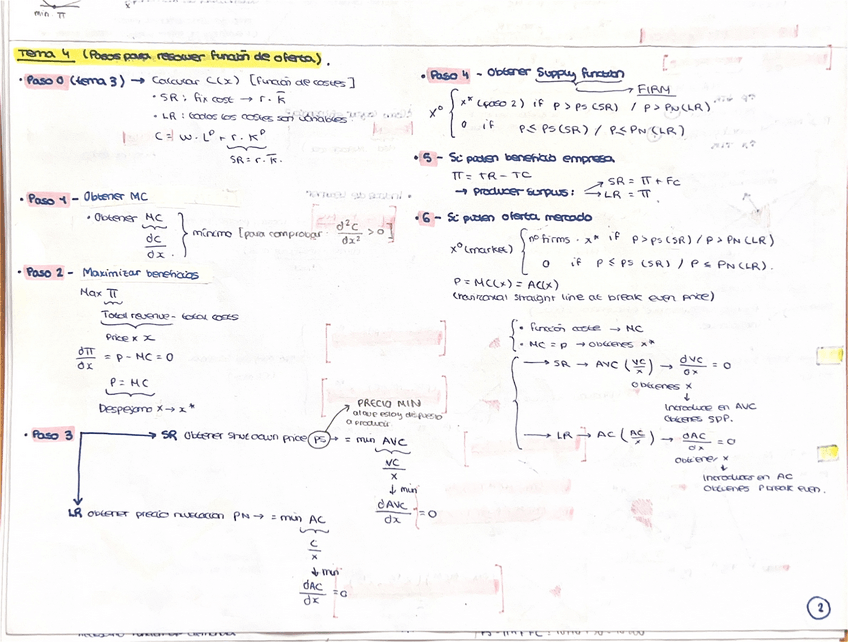 min. π
Tema 4 (Pasos para resolver función de oferta).
• Paso 0 (tema 3) → Calcular C(x) [función de costes]
• SR: fix cost → r · K̅
• LR: todos los costes son variables
C = w · Lᴰ + r · Kᴰ
SR = r · K̅.
• Paso 1 - Obtener MC
• Obtener MC
dC
dx
} mínimo [para comprobar: d²C/dx² > 0]
• Paso 2 - Maximizar beneficios
Max π
Total revenue - total costs
Price × x
dπ/dx = P - MC = 0
P = MC
Despejamos x → x*
• Paso 3
→ SR Obtener shutdown price PS → = min AVC
PRECIO MIN
al que estoy dispuesto
a producir
VC
x
↓ min
dAVC/dx = 0
LR obtener precio nivelación PN → = min AC
C
x
↓ min
dAC/dx = 0
• Paso 4 - Obtener Supply function
→ FIRM
x⁰ { x* (paso 2) if P > PS (SR) / P > PN (LR)
0 if P ≤ PS (SR) / P ≤ PN (LR)
• 5 - Si piden beneficio empresa
π = TR - TC
→ Producer surplus: → SR = π + FC
→ LR = π.
• 6 - Si piden oferta mercado
x⁰ (market) { nº firms · x* if P > PS (SR) / P > PN (LR)
0 if P ≤ PS (SR) / P ≤ PN (LR).
P = MC(x) = AC(x)
(horizontal straight line at break even price)
• Función coste → MC
• MC = P → obtienes x*
→ SR → AVC (VC/x) → dVC/dx = 0
Obtienes x
↓
Introduce en AVC
Obtienes SDP.
→ LR → AC (AC/x) → dAC/dx = 0
Obtener x
↓
Introduces en AC
Obtienes P break even.
2